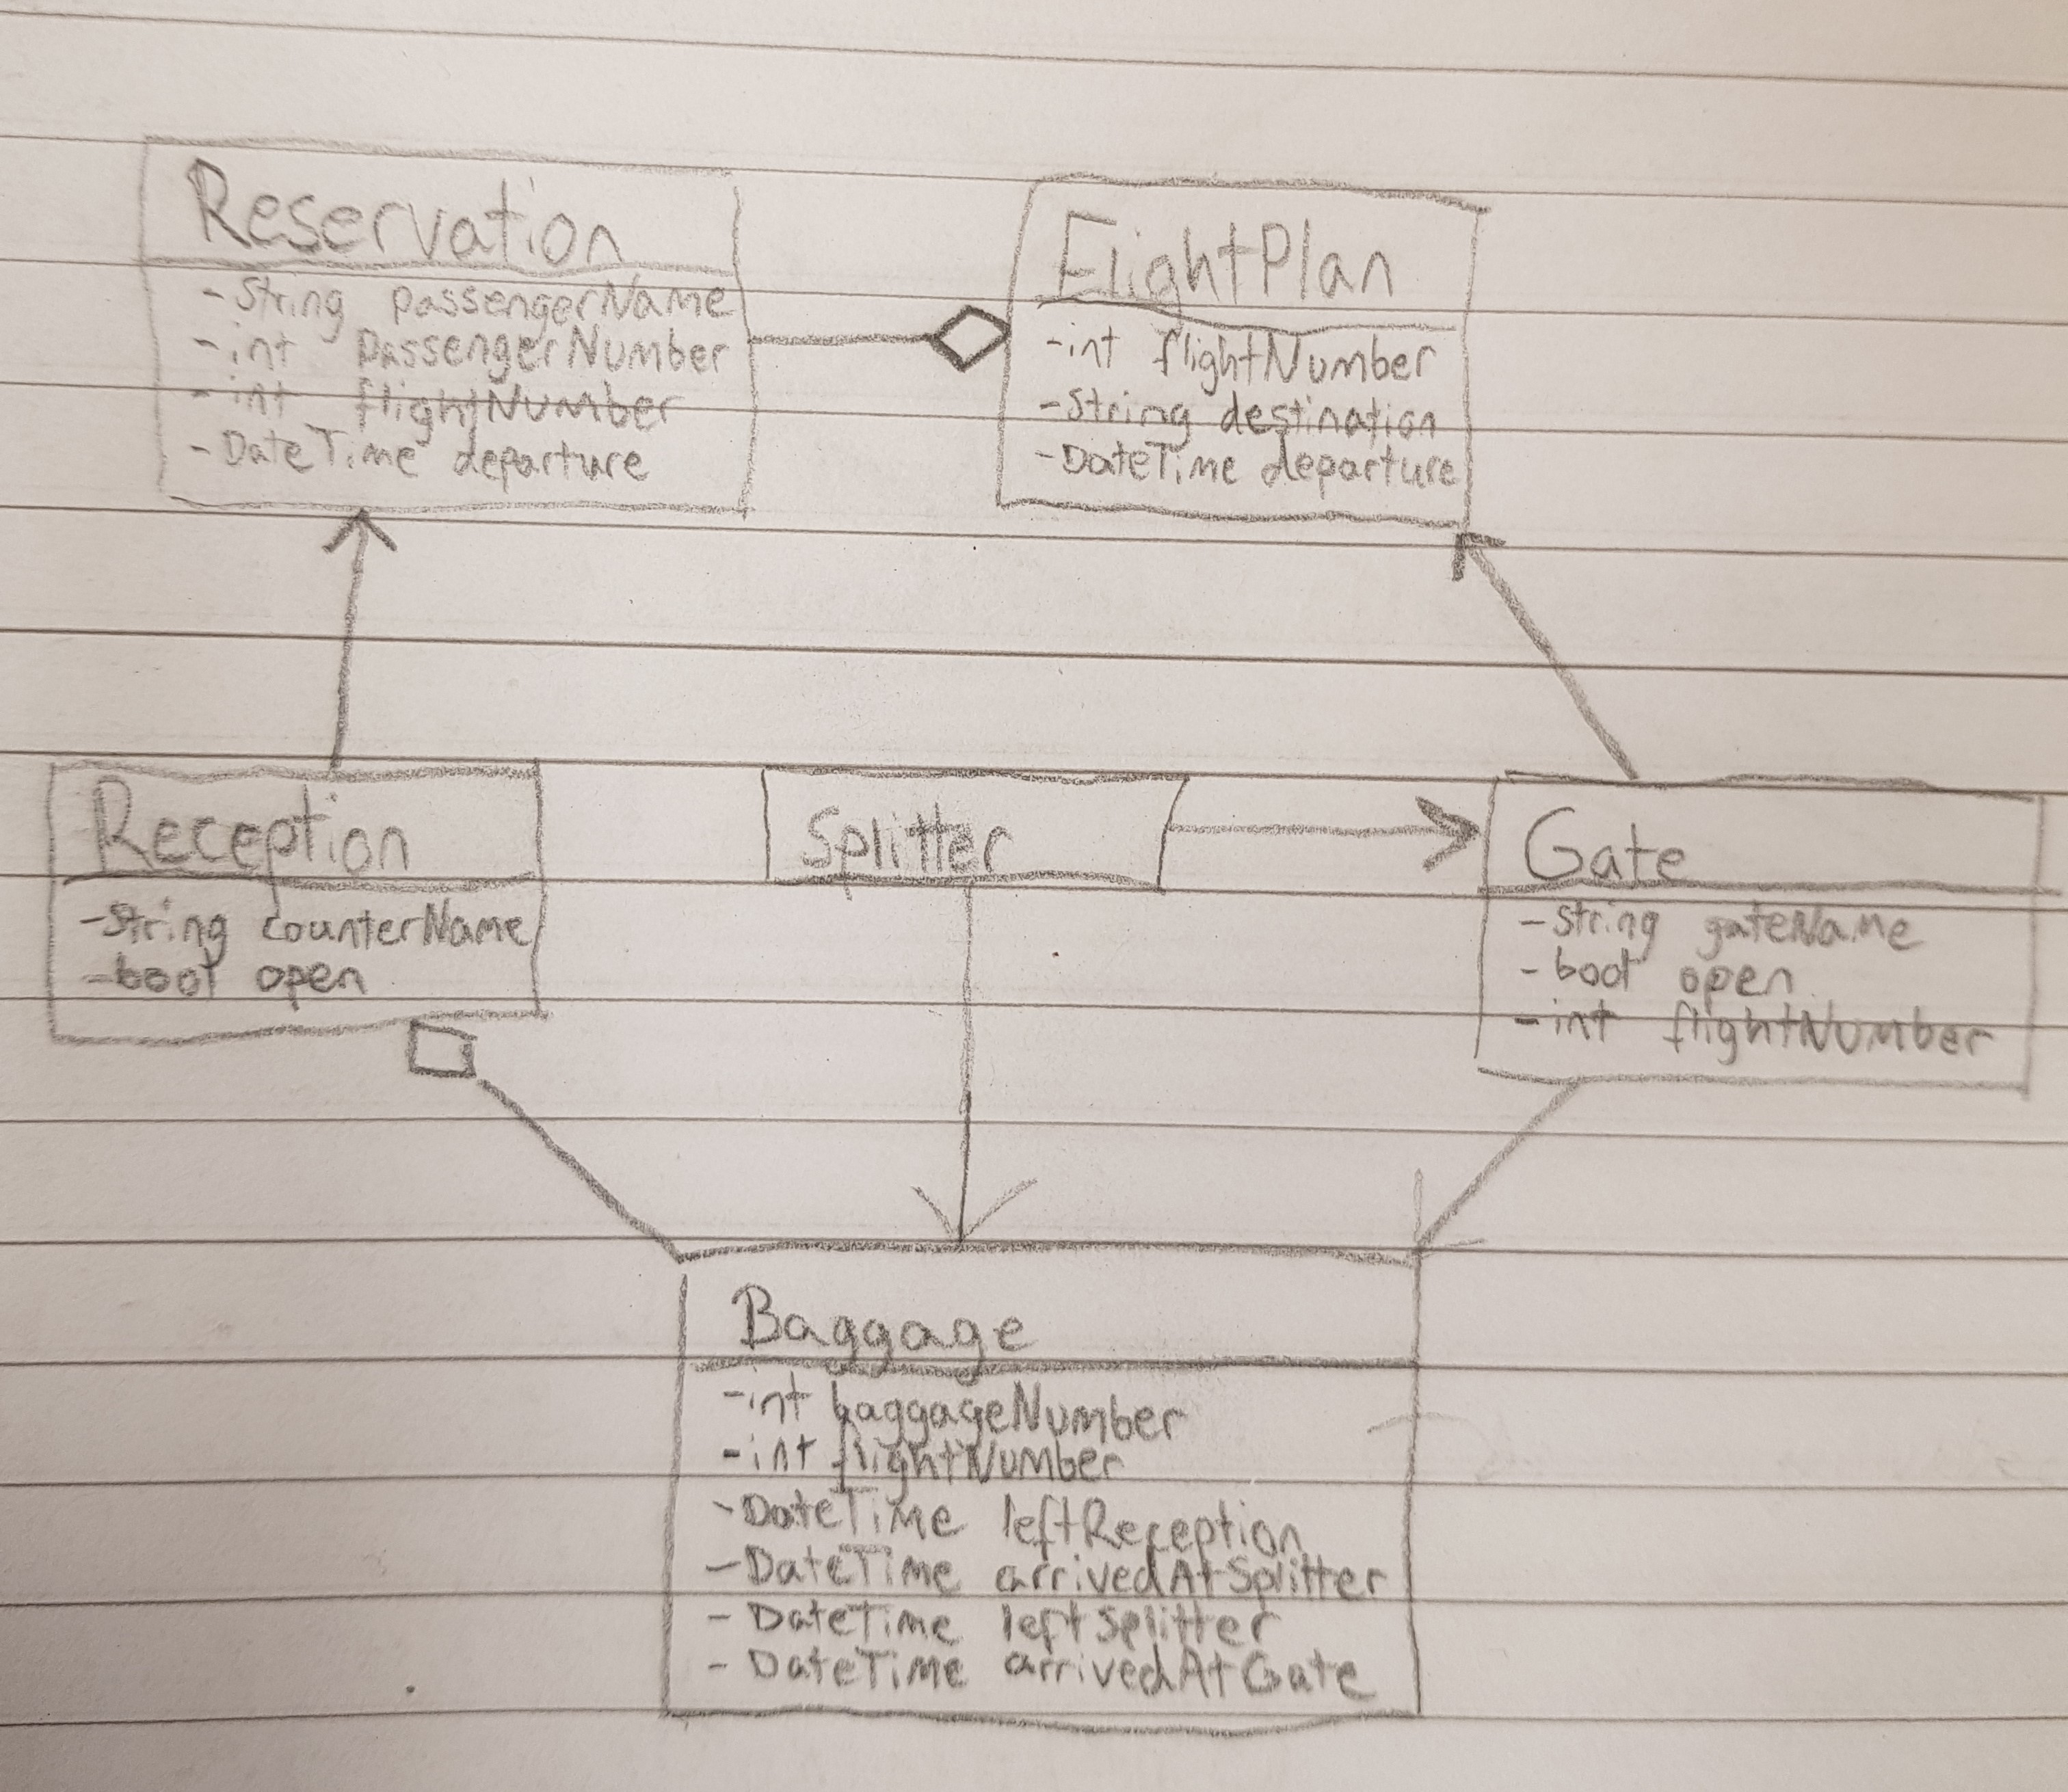 Reservation
-String passengerName
-int passengerNumber
-int flightNumber
-DateTime departure
FlightPlan
-int flightNumber
-String destination
-DateTime departure
Reception
-String counterName
-bool open
Splitter
Gate
-String gateName
-bool open
-int flightNumber
Baggage
-int baggageNumber
-int flightNumber
-DateTime leftReception
-DateTime arrivedAtSplitter
-DateTime leftSplitter
-DateTime arrivedAtGate